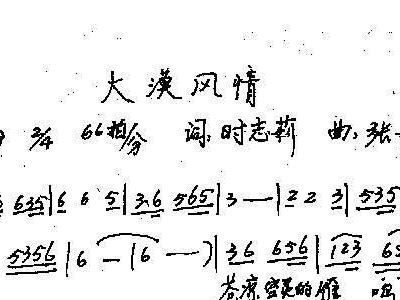 大漠风情
2/4 66拍/分 词:时志莉 曲:张
635|6 6 5|3.6 565|3 —|2 2 3|535
5356|6 —|6 —)|36 656|123 6
苍凉 的雁